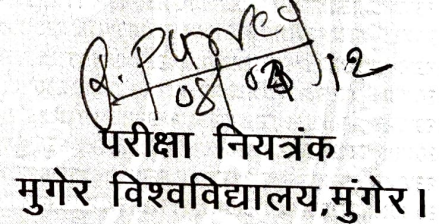 08/03/12
परीक्षा नियत्रंक
मुगेर विश्वविद्यालय,मुंगेर।